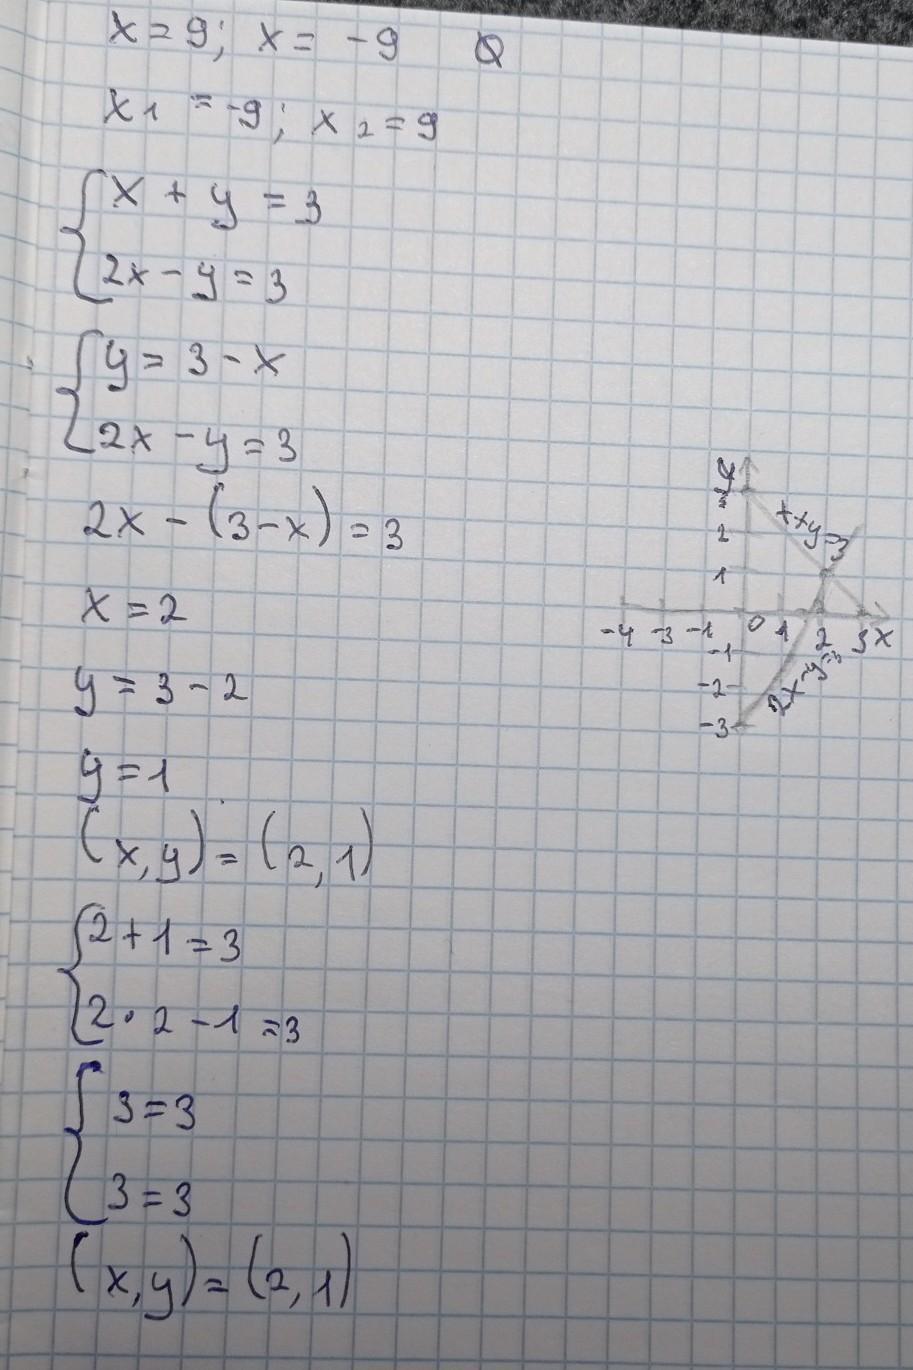 x = 9; x = -9
x1 = -9; x2 = 9
{ x + y = 3
2x - y = 3
{ y = 3 - x
2x - y = 3
2x - (3 - x) = 3
x = 2
y = 3 - 2
y = 1
(x, y) = (2, 1)
{ 2 + 1 = 3
2 · 2 - 1 = 3
{ 3 = 3
3 = 3
(x, y) = (2, 1)
y
2
1
-4 -3 -1 0 1 2 3 x
-1
-2
-3
2x-y=3